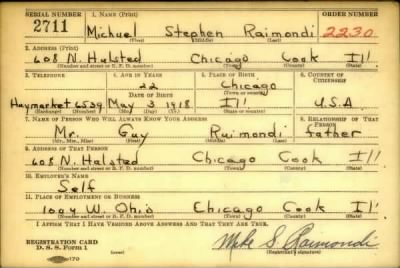 SERIAL NUMBER 1. NAME (Print) ORDER NUMBER
2711 Michael Stephen Raimondi 2230
(First) (Middle) (Last)
2. ADDRESS (Print)
608 N. Halsted Chicago Cook Ill
(Number and street or R. F. D. number) (Town) (County) (State)
3. TELEPHONE 4. AGE IN YEARS 5. PLACE OF BIRTH 6. COUNTRY OF CITIZENSHIP
22 Chicago
DATE OF BIRTH (Town or county)
Haymarket 6539 May 3 1918 Ill U.S.A
(Exchange) (Number) (Mo.) (Day) (Yr.) (State or country)
7. NAME OF PERSON WHO WILL ALWAYS KNOW YOUR ADDRESS 8. RELATIONSHIP OF THAT PERSON
Mr. Guy Raimondi father
(Mr., Mrs., Miss) (First) (Middle) (Last)
9. ADDRESS OF THAT PERSON
608 N. Halsted Chicago Cook Ill
(Number and street or R. F. D. number) (Town) (County) (State)
10. EMPLOYER'S NAME
Self
11. PLACE OF EMPLOYMENT OR BUSINESS
1004 W. Ohio Chicago Cook Ill
(Number and street or R. F. D. number) (Town) (County) (State)
I AFFIRM THAT I HAVE VERIFIED ABOVE ANSWERS AND THAT THEY ARE TRUE.
REGISTRATION CARD
D. S. S. Form 1 Mike S. Raimondi
(over) (Registrant's signature)